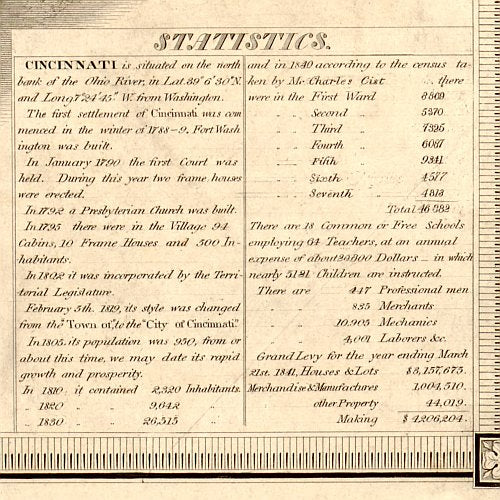 STATISTICS.
CINCINNATI is situated on the north
bank of the Ohio River, in Lat. 39° 6' 30" N.
and Long. 7° 24' 45" W. from Washington.
The first settlement of Cincinnati was com
menced in the winter of 1788-9. Fort Wash
ington was built.
In January 1790 the first Court was
held. During this year two frame houses
were erected.
In 1792 a Presbyterian Church was built.
In 1795 there were in the Village 94
Cabins, 10 Frame Houses and 500 In-
habitants.
In 1802 it was incorporated by the Terri-
torial Legislature.
February 5th. 1819, its style was changed
from the "Town of", to the "City of Cincinnati".
In 1805. its population was 950, from or
about this time, we may date its rapid
growth and prosperity.
In 1810 it contained 2,320 Inhabitants.
" 1820 " 9,642 "
" 1830 " 26,515 "
and in 1840 according to the census ta-
ken by Mr. Charles Cist there
were in the First Ward
" " Second " 5270
" " Third " 7395
" " Fourth " 6087
" " Fifth " 9341
" " Sixth " 4577
" " Seventh " 4813
Total
There are 13 Common or Free Schools
employing 64 Teachers, at an annual
expense of about Dollars - in which
nearly 5121 Children are instructed.
There are 447 Professional men
835 Merchants
10,905 Mechanics
4,001 Laborers &c.
Grand Levy for the year ending March
21st. 1841, Houses & Lots $3,157,675.
Merchandise & Manufactures 1,004,510.
other Property 44,019.
Making $4206,204.